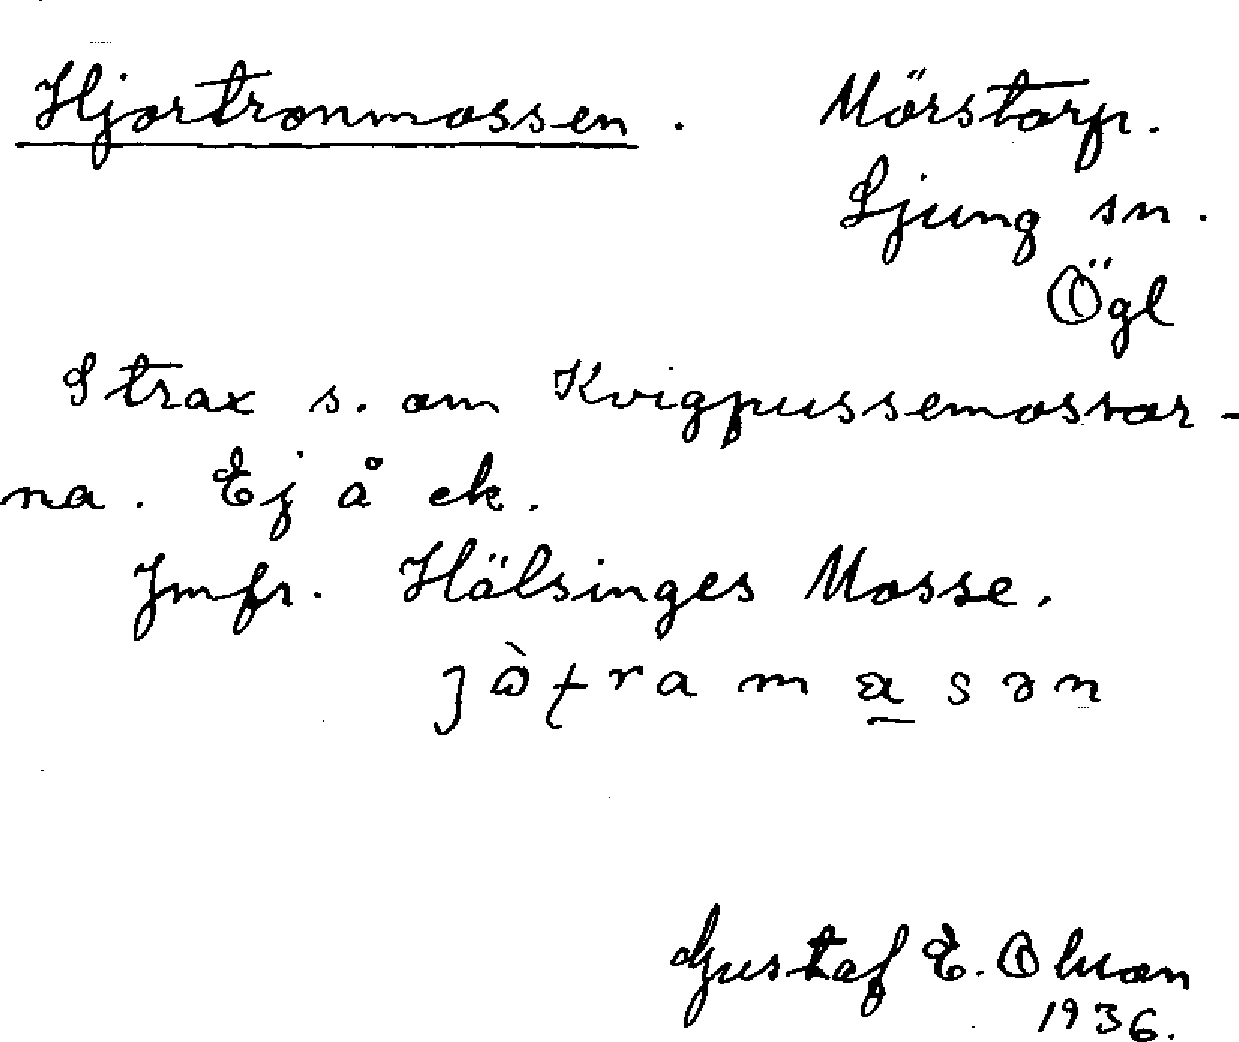 Hjortronmossen. Mörstorp.
Ljung sn.
Ögl
Strax s. om Kvigpussemossar-
na. Ej å ek.
Jmfr. Hälsinges Mosse.
Gustaf E. Olson
1936.